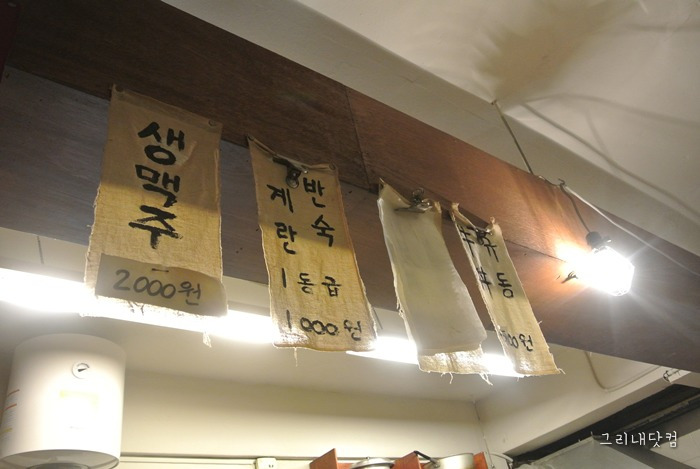 생맥주
2000원
반숙
계란
1동급
1000원
동
원
그리내닷컴